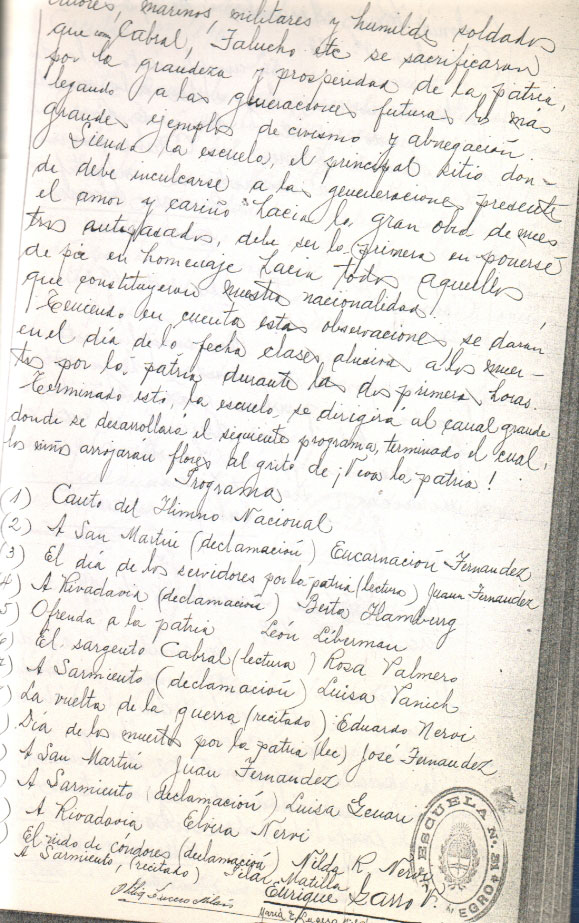 marinos, militares y humildes soldados
que Cabral, Falucho etc se sacrificaron
por la grandeza y prosperidad de la patria,
legando a las generaciones futuras los más
grandes ejemplos de civismo y abnegación.
Siendo la escuela, el principal sitio don-
de debe inculcarse a las geneneraciones presente
el amor y cariño hacia la gran obra de nues
tros antepasados, debe ser la primera en ponerse
de pie en homenaje hacia todos aquellos
que constituyeron nuestra nacionalidad!
Teniendo en cuenta estas observaciones se darán
en el día de la fecha clases, alusivas a los muer-
tos por la patria durante las dos primeras horas.
Terminado esto, la escuela, se dirigirá al canal grande
donde se desarrollará el siguiente programa, terminado el cual,
los niños arrojarán flores al grito de ¡Viva la patria!
Programa
(1) Canto del Himno Nacional
(2) A San Martin (declamación) Encarnación Fernandez
(3) El día de los servidores por la patria (lectura) Juana Fernandez
4) A Rivadavia (declamación) Berta Hamburg
5) Ofrenda a la patria León Liberman
) El sargento Cabral (lectura) Rosa Palmero
) A Sarmiento (declamación) Luisa Vanich
) La vuelta de la guerra (recitado) Eduardo Nervi
) Dia de los muertos por la patria (lec) José Fernandez
) A San Martin Juan Fernandez
) A Sarmiento (declamación) Luisa Genari
) A Rivadavia Elvira Nervi
El nido de condores (declamación) Nilda R. Nervi
A Sarmiento, (recitado) Pilar Matilla
Enrique Garro V.
ESCUELA Nº
NEGRO